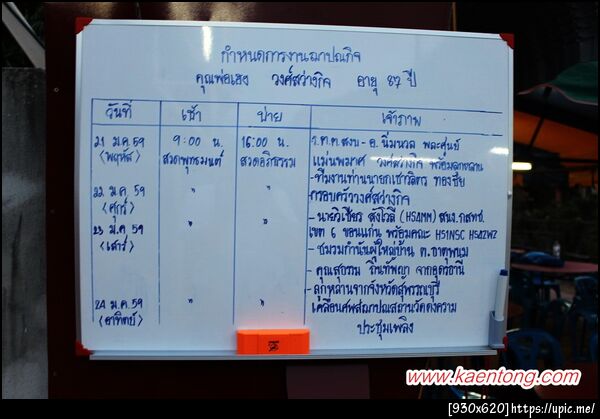 กำหนดการงานฌาปณกิจ
คุณพ่อเฮง วงศ์สว่างกิจ อายุ 87 ปี
วันที่ เช้า บ่าย เจ้าภาพ
21 ม.ค. 59 9:00 น. 16:00 น. ร.ต.ต.สงบ - อ. นิ่มนวล พละศูนย์
<พฤหัส> สวดพุทธมนต์ สวดอภิธรรม แม่นพมาศ วงศ์สว่างกิจ พร้อมลูกหลาน
- ทีมงานท่านนายกเชาวลิตร ทองชัย
22 ม.ค. 59 " " ครอบครัววงศ์สว่างกิจ
<ศุกร์> - นายวิเชียร สังโวลี (HS4MM) สนง.กสทช.
23 ม.ค. 59 " " เขต 6 ขอนแก่น พร้อมคณะ HS1NSC HS4ZWZ
<เสาร์> - ชมรมกำนันผู้ใหญ่บ้าน ต.ธาตุพนม
- คุณสุธรรม ถิ่นทัพญา จากอุดรธานี
- ลูกหลานจากจังหวัดสุพรรณบุรี
24 ม.ค. 59 " " เคลื่อนศพสู่ฌาปณสถานวัดดงความ
<อาทิตย์> ประชุมเพลิง
www.kaentong.com
[930x620]https://upic.me/